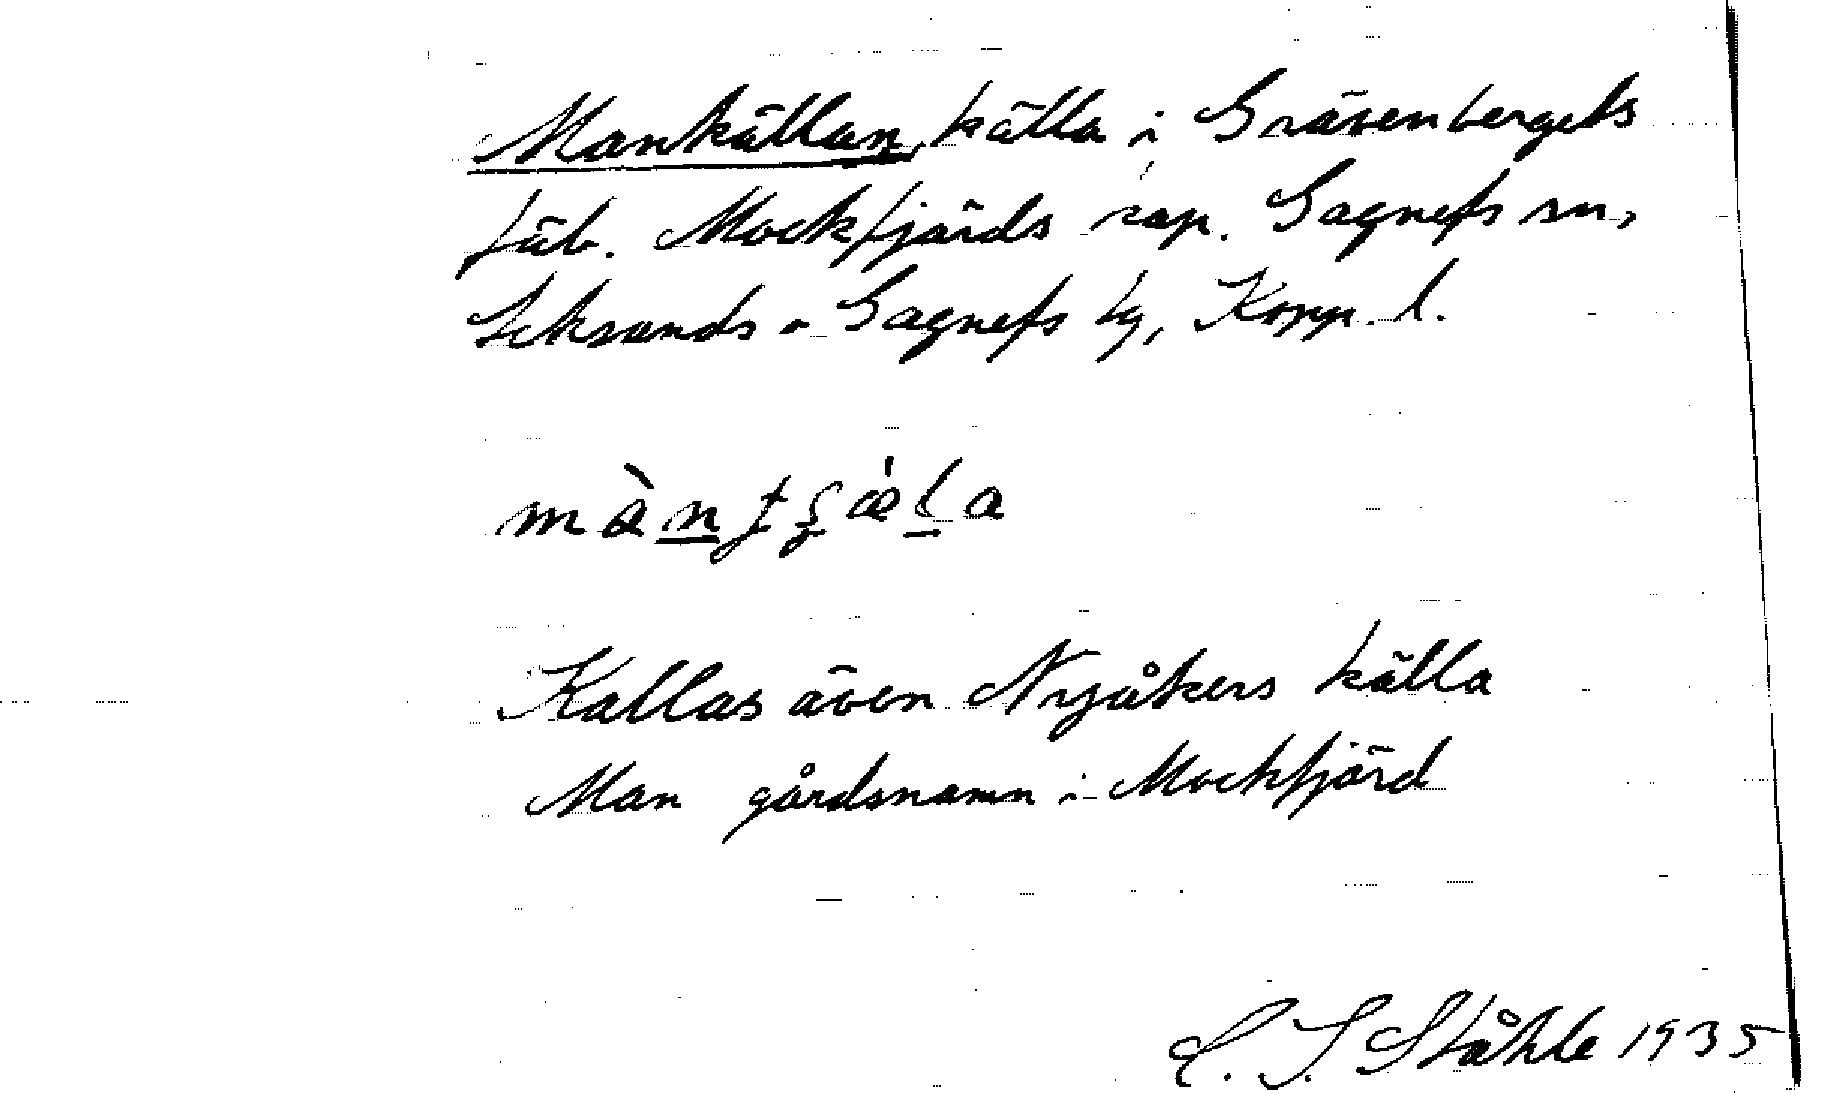 Mankällan, källa i Grävenbergets
fäb. Mockfjärds kap. Gagnefs sn,
Leksands o Gagnefs tg, Kopp. l.
màn̲tʂæ̍l̲a
Kallas även Nyåkers källa
Man gårdsnamn i Mockfjärd
C. I. Ståhle 1935